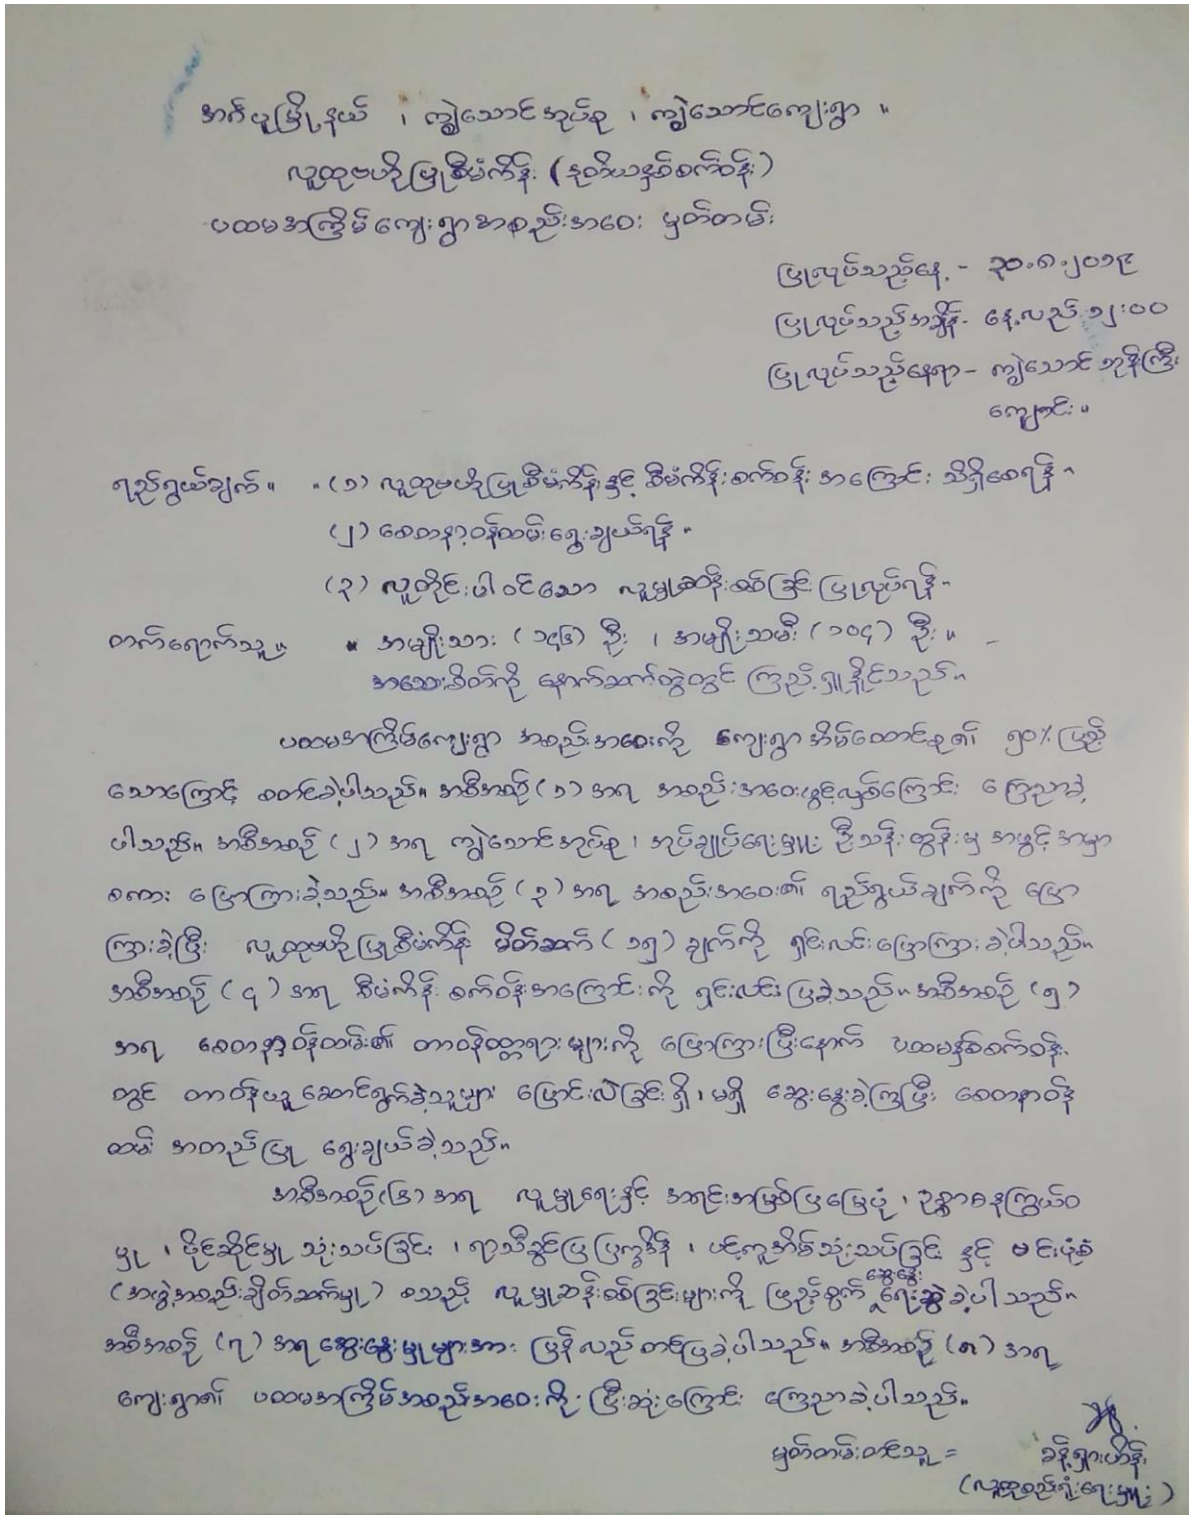 အင်္ဂပူမြို့နယ် ၊ ကျွဲသောင်အုပ်စု ၊ ကျွဲသောင်ကျေးရွာ ။
လူထုဗဟိုပြုစီမံကိန်း (ဒုတိယနှစ်စက်ဝန်း)
ပထမအကြိမ်ကျေးရွာအစည်းအဝေး မှတ်တမ်း
ပြုလုပ်သည့်နေ့ - ၃၀.၈.၂၀၁၉
ပြုလုပ်သည့်အချိန် - နေ့လည် ၁၂:၀၀
ပြုလုပ်သည့်နေရာ - ကျွဲသောင်ဘုန်းကြီး
ကျောင်း ။
ရည်ရွယ်ချက် ။ ။ (၁) လူထုဗဟိုပြုစီမံကိန်းနှင့် စီမံကိန်းစက်ဝန်း အကြောင်း သိရှိစေရန် ။
(၂) စေတနာ့ဝန်ထမ်းရွေးချယ်ရန် ။
(၃) လူတိုင်းပါဝင်သော လူမှုဆန်းစစ်ခြင်း ပြုလုပ်ရန် ။
တက်ရောက်သူ ။ ။ အမျိုးသား (၁၄၆) ဦး ၊ အမျိုးသမီး (၁၀၄) ဦး ။
အသေးစိတ်ကို နောက်ဆက်တွဲတွင် ကြည့်ရှုနိုင်သည် ။
ပထမအကြိမ်ကျေးရွာ အစည်းအဝေးကို ကျေးရွာအိမ်ထောင်စု၏ ၅၀% ပြည့်
သောကြောင့် စတင်ခဲ့ပါသည်။ အစီအစဉ် (၁) အရ အစည်းအဝေးဖွင့်လှစ်ကြောင်း ကြေညာခဲ့
ပါသည်။ အစီအစဉ် (၂) အရ ကျွဲသောင်အုပ်စု ၊ အုပ်ချုပ်ရေးမှူး ဦးသန်းထွန်းမှ အဖွင့်အမှာ
စကား ပြောကြားခဲ့သည်။ အစီအစဉ် (၃) အရ အစည်းအဝေး၏ ရည်ရွယ်ချက်ကို ပြော
ကြားခဲ့ပြီး လူထုဗဟိုပြုစီမံကိန်း မိတ်ဆက် (၁၅) ချက်ကို ရှင်းလင်းပြောကြားခဲ့ပါသည်။
အစီအစဉ် (၄) အရ စီမံကိန်းစက်ဝန်းအကြောင်းကို ရှင်းလင်းပြခဲ့သည်။ အစီအစဉ် (၅)
အရ စေတနာ့ဝန်ထမ်း၏ တာဝန်ဝတ္တရားများကို ပြောကြားပြီးနောက် ပထမနှစ်စက်ဝန်း
တွင် တာဝန်ယူဆောင်ရွက်ခဲ့သူများ ပြောင်းလဲခြင်းရှိ၊ မရှိ ဆွေးနွေးခဲ့ကြပြီး စေတနာ့ဝန်
ထမ်း အတည်ပြု ရွေးချယ်ခဲ့သည်။
အစီအစဉ်(၆) အရ လူမှုရေးနှင့် အရင်းအမြစ်ပြမြေပုံ ၊ ဥစ္စာဓနကြွယ်ဝ
မှု ၊ ပိုင်ဆိုင်မှု သုံးသပ်ခြင်း ၊ ရာသီခွင်ပြပြက္ခဒိန် ၊ ပင့်ကူအိမ်သုံးသပ်ခြင်း နှင့် ဗင်းပုံစံ
(အဖွဲ့အစည်းချိတ်ဆက်မှု) စသည့် လူမှုဆန်းစစ်ခြင်းများကို ဖြည့်စွက် ဆွေးနွေး ရေးဆွဲခဲ့ပါသည်။
အစီအစဉ် (၇) အရ ဆွေးနွေးမှုများအား ပြန်လည်တင်ပြခဲ့ပါသည်။ အစီအစဉ် (၈) အရ
ကျေးရွာ၏ ပထမအကြိမ်အစည်းအဝေးကို ပြီးဆုံးကြောင်း ကြေညာခဲ့ပါသည်။
မှတ်တမ်းတင်သူ =
(လူထုစည်းရုံးရေးမှူး)